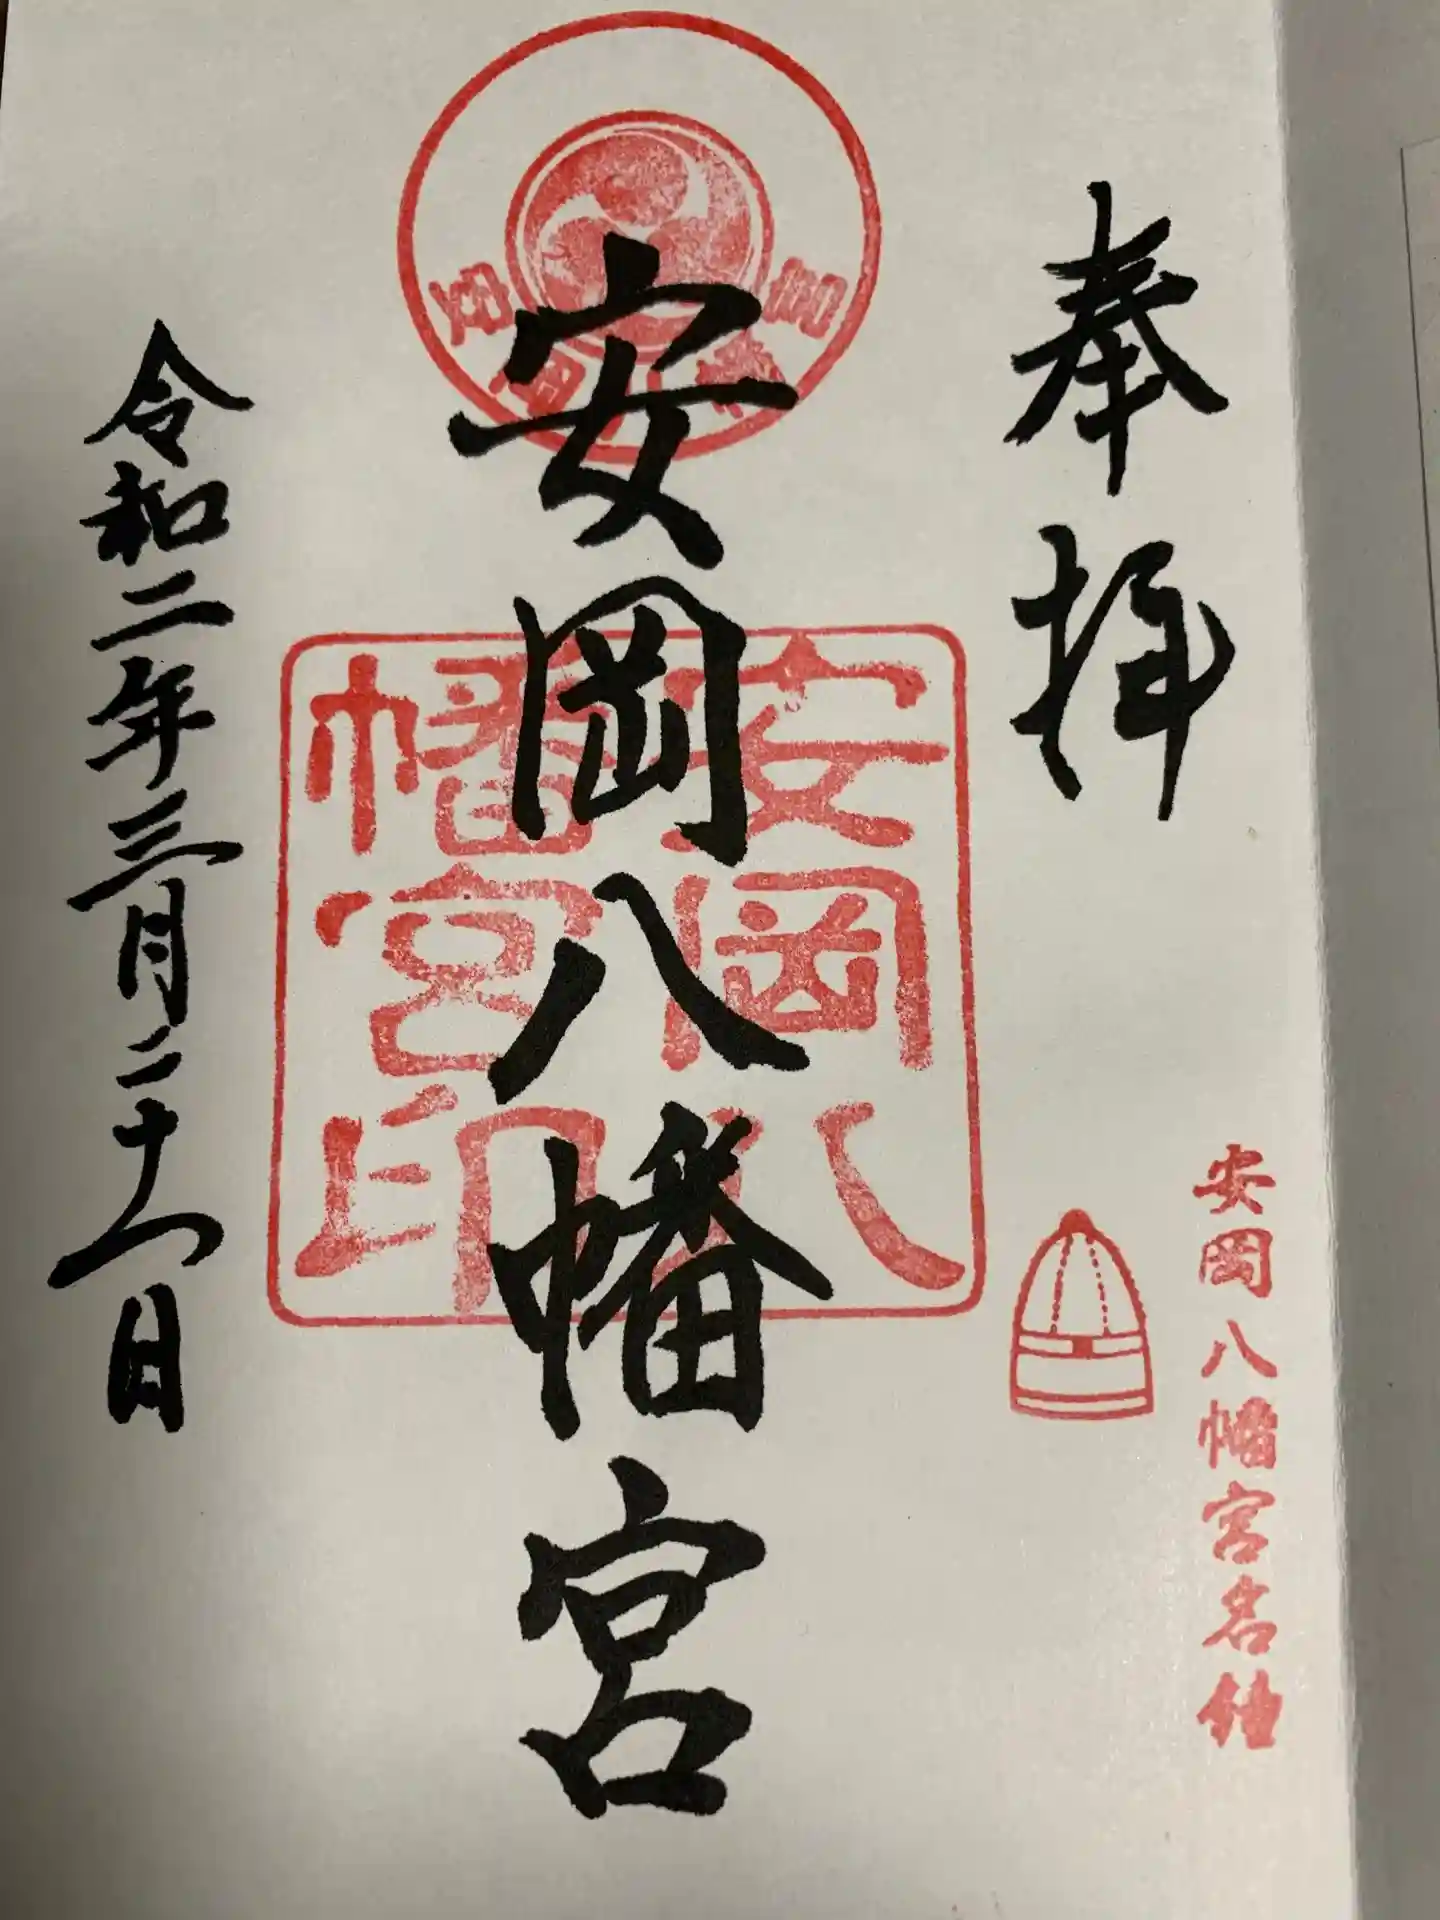 奉拝
安岡八幡宮名鐘
安岡八幡宮
安岡八幡宮印
令和二年三月二十八日